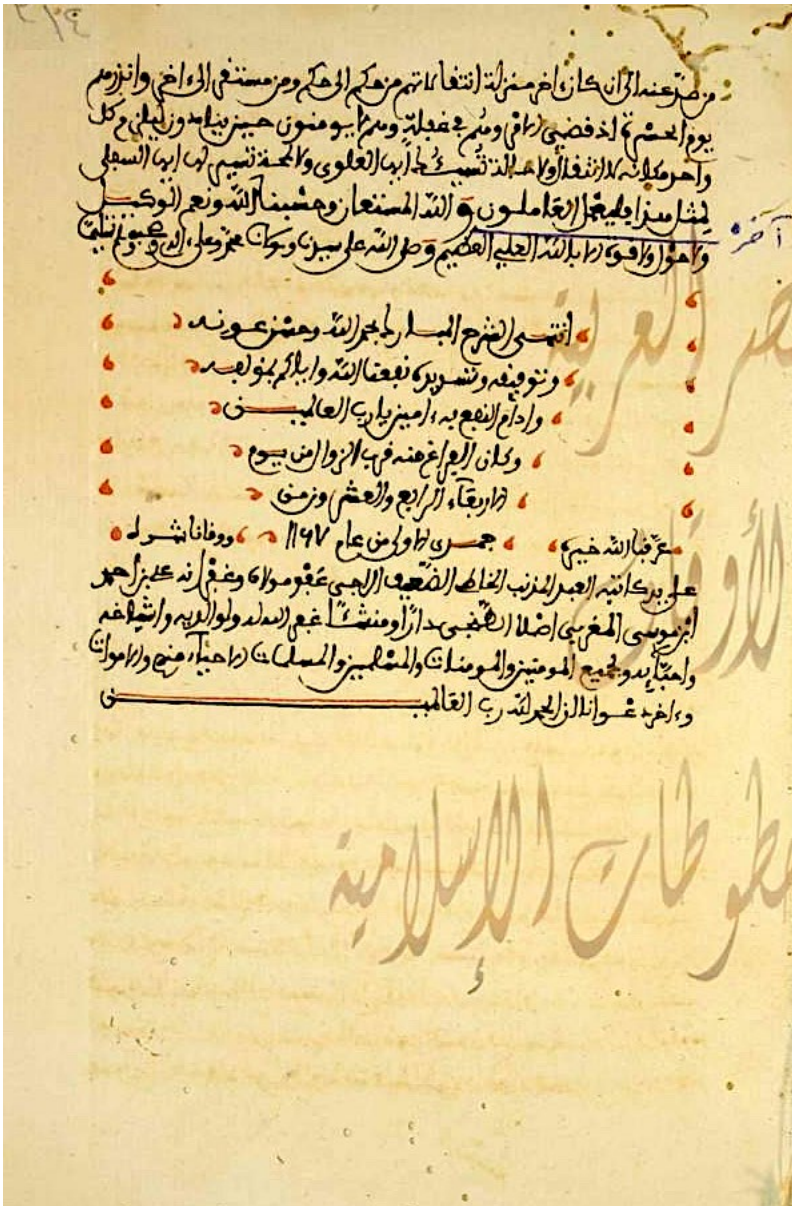 من ضر عنه الى ان كان اخر منزلة انتقالاتهم من حكم الى حكم ومن مستقر الى اخر وانذرهم
يوم الحسرة اذ قضي الامر وهم في غفلة وهم لا يومنون حينئذ
واحد مكانه لا انتقال ولا العلوي ولا السفلي
لمثل هذا فليعمل العاملون والله المستعان وحسبنا الله ونعم الوكيل
آخره
ولا حول ولا قوة الا بالله العلي العظيم وصلى الله على سيدنا ومولانا محمد وعلى اله وصحبه وسلم تسليما
انتهى الشرح المبارك بحمد الله وحسن عونه
وتوفيقه وتسديده نفعنا الله واياكم بمؤلفه
وادام النفع به ءامين يا رب العالمين
وكان الفراغ منه قرب الزوال من يوم
الاربعاء الرابع والعشرون من
جمدى الاولى من عام ١١٦٧ عرفنا الله خيره ووقانا شره
على يد كاتبه العبد المذنب الخاطئ الضعيف الراجي عفو مولاه وغفرانه احمد
ابن موسى المغربي اصلا الطنجي دارا ومنشئا غفر الله له ولوالديه واشياخه
واحبائه ولجميع المومنين والمومنات والمسلمين والمسلمات الاحياء منهم والاموات
وءاخر دعوانا ان الحمد لله رب العالمين
المخطوطات الإسلامية